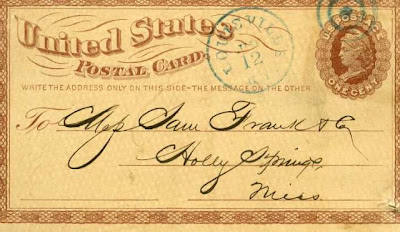 United States
POSTAL CARD.
LOUISVILLE
12
U.S. POSTAGE
ONE CENT
WRITE THE ADDRESS ONLY ON THIS SIDE-THE MESSAGE ON THE OTHER
To Mess Sam Frank & Co
Holly Springs
Miss